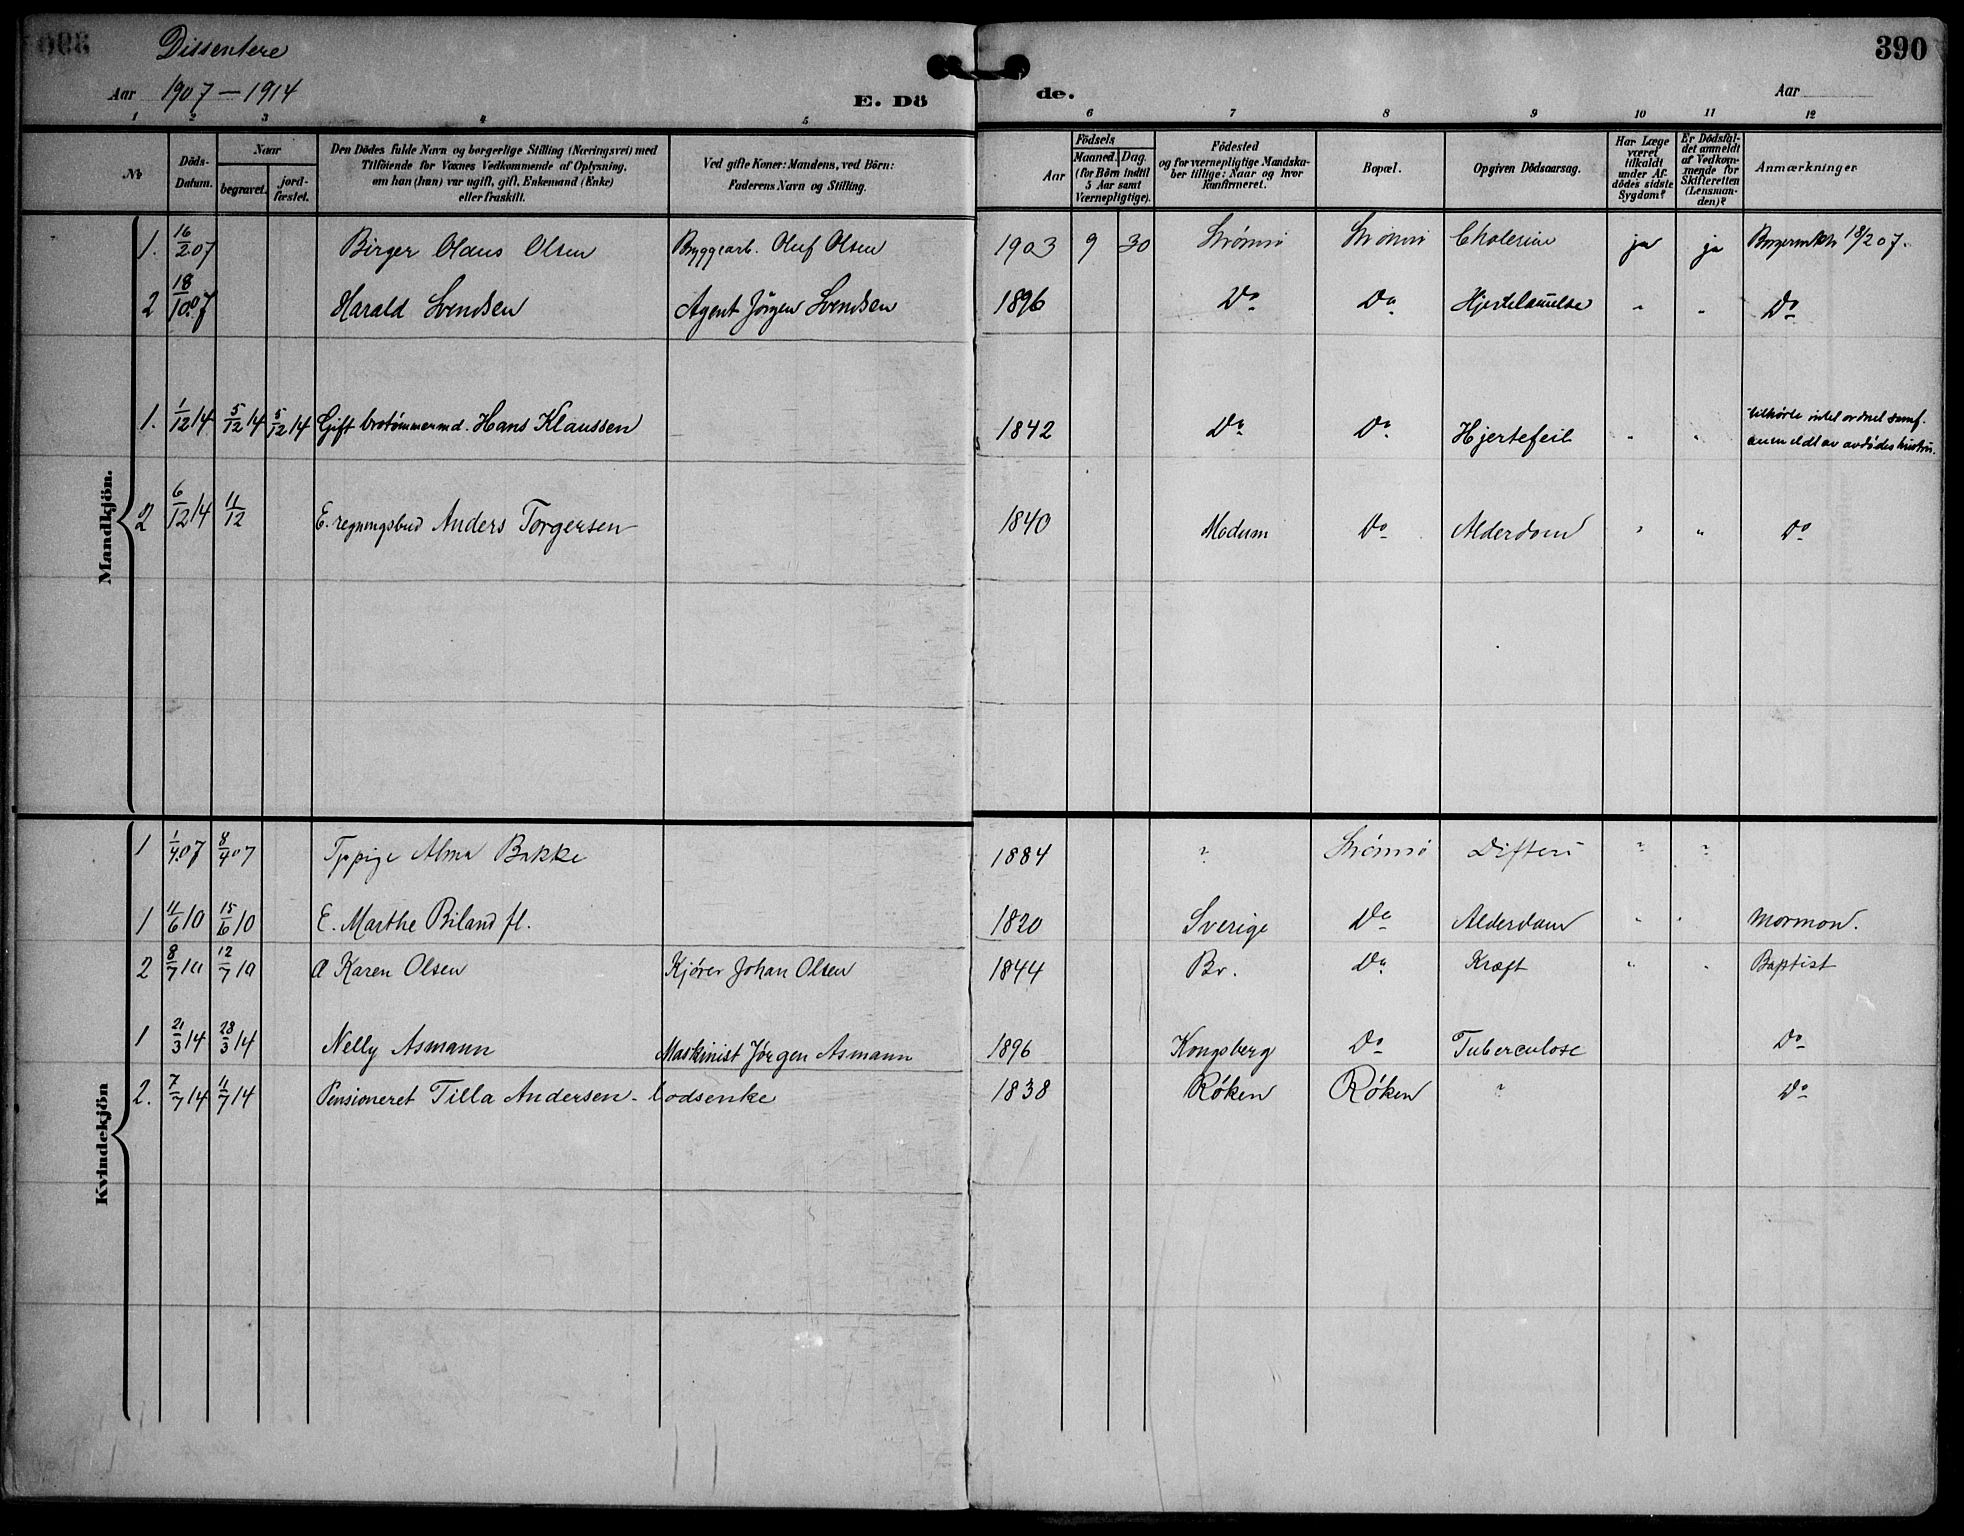 Dissentere
390
Aar 1907 – 1914
E. Dö
de.
Aar
1 2 3 4 5 6 7 8 9 10 11 12
№
Döds-
Datum.
Naar
begravet.
jord-
fæstet.
Den Dödes fulde Navn og borgerlige Stilling (Næringsvei) med
Tilföiende for Voxnes Vedkommende af Oplysning,
om han (hun) var ugift, gift, Enkemand (Enke)
eller fraskilt.
Ved gifte Koner: Mandens, ved Börn:
Faderens Navn og Stilling.
Födsels
Aar
Maaned. Dag.
(for Börn indtil
5 Aar samt
Værnepligtige).
Födested
og for værnepligtige Mandska-
ber tillige: Naar og hvor
konfirmeret.
Bopæl.
Opgiven Dödsaarsag.
Har Læge
været
tilkaldt
under Af-
dödes sidste
Sygdom?
Er Dödsfal-
det anmeldt
af Vedkom-
mende for
Skifteretten
(Lensman-
den)?
Anmærkninger
Mandkjön.
1. 16/2 07 Birger Olaus Olsen Byggearb. Oluf Olsen 1903 9 30 Strømsø Strømsø Cholerine ja ja 18/2 07.
2 18/10 07 Harald Svendsen Agent Jörgen Svendsen 1896 Do Do Hjertelammelse " " Do
1. 1/12 14 5/12 14 5/12 14 Gift brotømmermd. Hans Klaussen 1842 Do Do Hjertefeil " " tilhørte intet ordnet samf.
anmeldt av avdødes hustru.
2 6/12 14 11/12 E. regningsbud Anders Torgersen 1840 Modum Do Alderdom " " Do
Kvindekjön
1 1/4 07 8/4 07 Tjpige Alma Bakke 1884 ? Strømsø Difteri ? ?
1 11/6 10 15/6 10 E. Marthe Biland fl. 1820 Sverige Do Alderdom " " Mormon.
2 8/7 10 12/7 10 Karen Olsen Kjører Johan Olsen 1844 Br. Do Kræft " " Baptist
1 21/3 14 28/3 14 Nelly Asmann Maskinist Jørgen Asmann 1896 Kongsberg Do Tuberculose Do
2. 7/7 14 11/7 14 Pensioneret Tilla Andersen - lodsenke 1838 Røken Røken ? Do